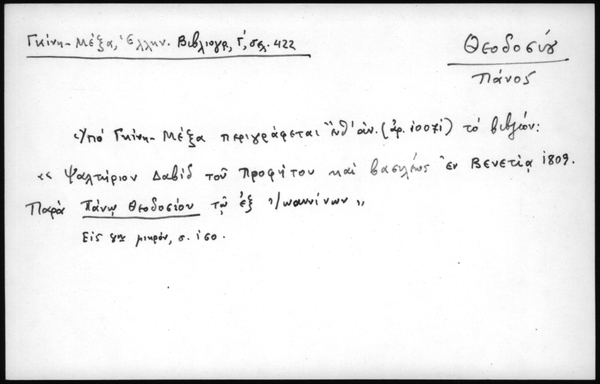 Γκίνη-Μέξα, Ἑλλην. Βιβλιογρ, Γ΄, σελ. 422
Θεοδοσίου
Πάνος
Ὑπό Γκίνη-Μέξα περιγράφεται (ἀρ. 10071) τό βιβλίον:
«Ψαλτήριον Δαβίδ τοῦ Προφήτου καί βασιλέως Ἐν Βενετίᾳ 1809.
Παρά Πάνῳ Θεοδοσίου τῷ ἐξ Ἰωαννίνων»
Εἰς 8ον μικρόν, σ. 160.